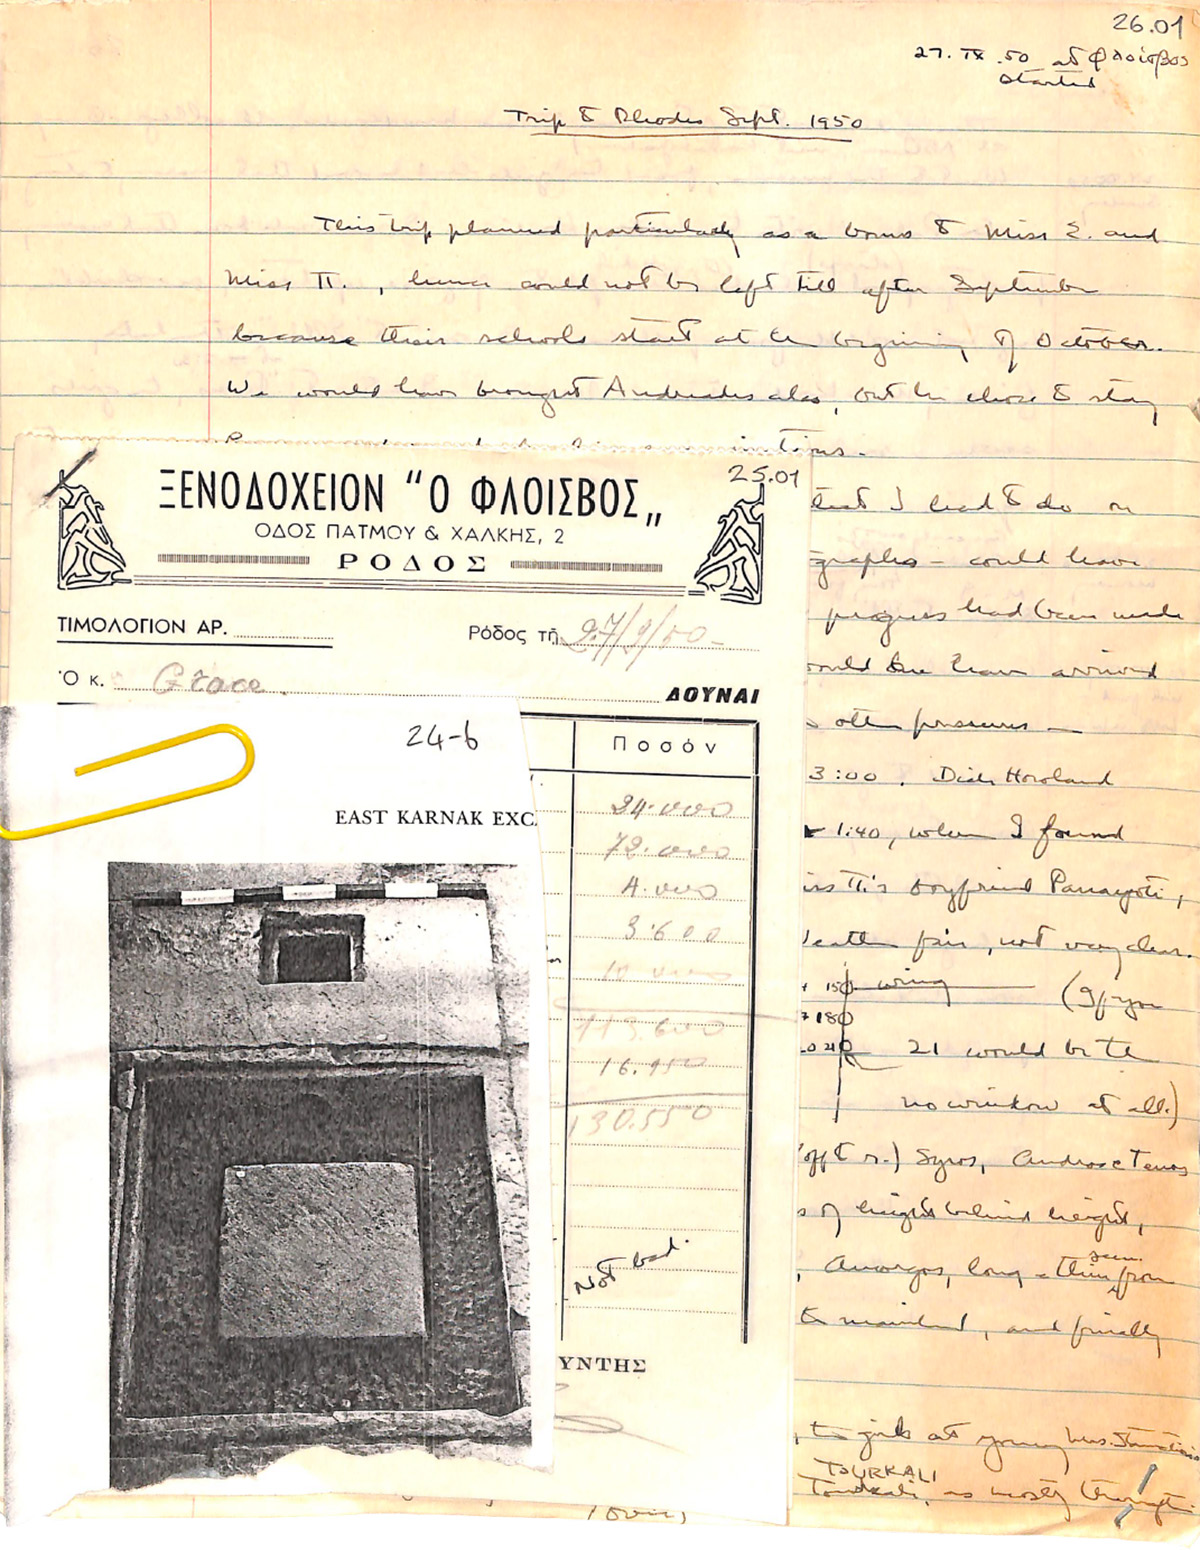 26.01
27. IX .50 at Φλοίσβος
started
Trip to Rhodes Sept. 1950
This trip planned particularly as a bonus to Miss Σ. and
Miss Π., hence could not be left till after September
because their schools start at the beginning of October.
We would have brought Andreades also, but he chose to stay
25.01
ΞΕΝΟΔΟΧΕΙΟΝ “Ο ΦΛΟΙΣΒΟΣ„
ΟΔΟΣ ΠΑΤΜΟΥ & ΧΑΛΚΗΣ, 2
ΡΟΔΟΣ
ΤΙΜΟΛΟΓΙΟΝ ΑΡ.
Ρόδος τῇ 27/9/50
Ὁ κ. Grace.
ΔΟΥΝΑΙ
Ποσόν
24.000
72.000
4.000
3.600
10.000
113.600
16.950
130.550
Not bad.
ΥΝΤΗΣ
24-6
EAST KARNAK EXC
that I had to do on
graphs – could have
progress had been made
would have arrived
other pressures —
3:00. Dick Howland
1:40, when I found
iss Π's boyfriend Panayoti,
not very clear.
150 wing (If you
180
21 would be the
no window at all.)
(off to r.) Syros, Andros & Tenos
s of height behind height,
, Amorgos, long & thin seen from
mainland, and finally
, to girls at young Mrs.
TSURKALI
Tourkali, as mostly